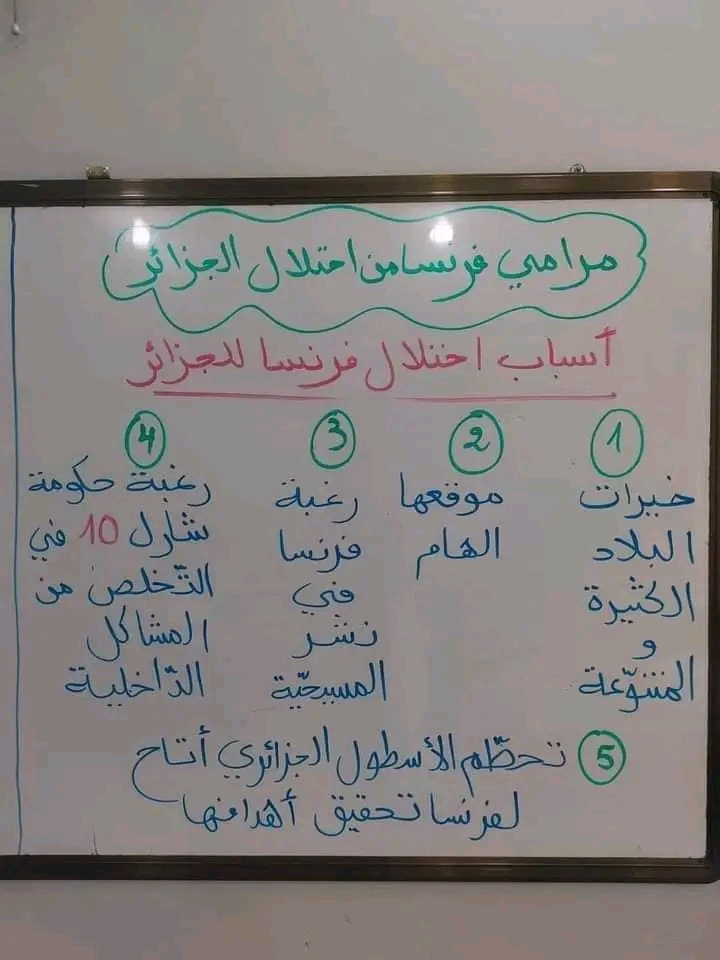 مرامي فرنسا من احتلال الجزائر
أسباب احتلال فرنسا للجزائر
1
خيرات
البلاد
الكثيرة
و
المتنوّعة
2
موقعها
الهام
3
رغبة
فرنسا
في
نشر
المسيحيّة
4
رغبة حكومة
شارل 10 في
التّخلص من
المشاكل
الدّاخلية
5 تحطّم الأسطول الجزائري أتاح
لفرنسا تحقيق أهدافها